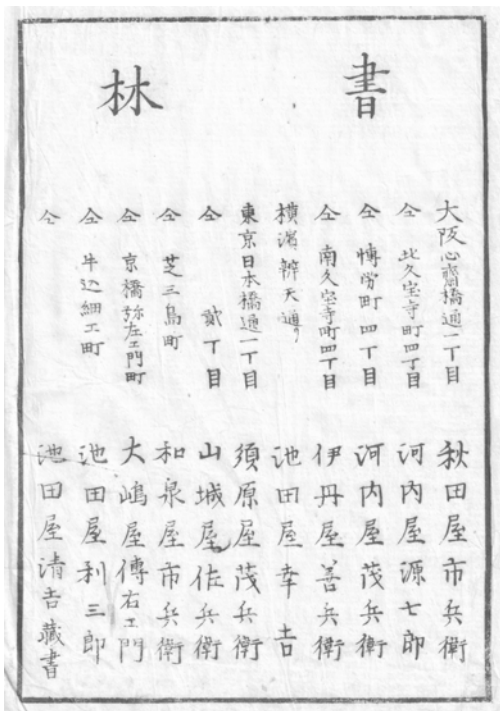 書林
大阪心齋橋通一丁目 秋田屋市兵衛
仝 北久宝寺町四丁目 河内屋源七郎
仝 博労町四丁目 河内屋茂兵衛
仝 南久宝寺町四丁目 伊丹屋善兵衛
横濱辨天通り 池田屋幸吉
東京日本橋通一丁目 須原屋茂兵衛
仝 貳丁目 山城屋佐兵衛
仝 芝三島町 和泉屋市兵衛
仝 京橋弥左エ門町 大嶋屋傳右エ門
仝 牛込細工町 池田屋利三郎
仝 池田屋清吉藏書